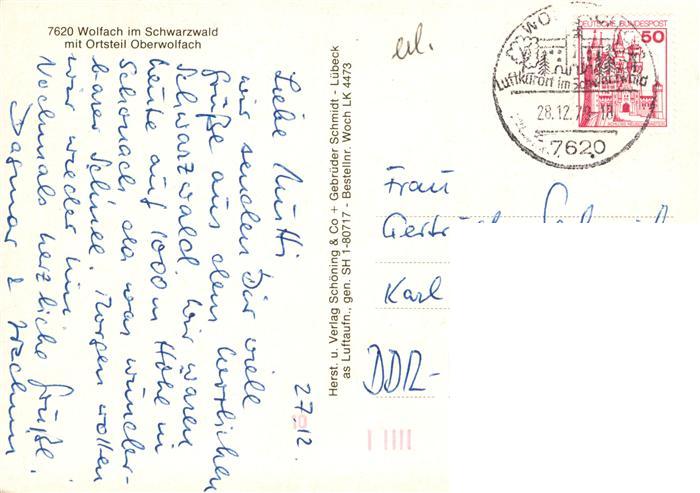 7620 Wolfach im Schwarzwald
mit Ortsteil Oberwolfach
27.12.
Liebe Mutti
wir senden Dir viele
Grüße aus dem herrlichen
Schwarzwald. Wir waren
heute auf 1000 m Höhe in
Schonach, da war wunder-
barer Schnee. Morgen wollen
wir wieder hin
Nochmals herzliche Grüße.
Dagmar &
Herst. u. Verlag Schöning & Co + Gebrüder Schmidt - Lübeck
as Luftaufn., gen. SH 1-80717 - Bestellnr. Woch LK 4473
erl.
DEUTSCHE BUNDESPOST
50
Luftkurort im Schwarzwald
28.12.
7620
Frau
Karl
DDR-